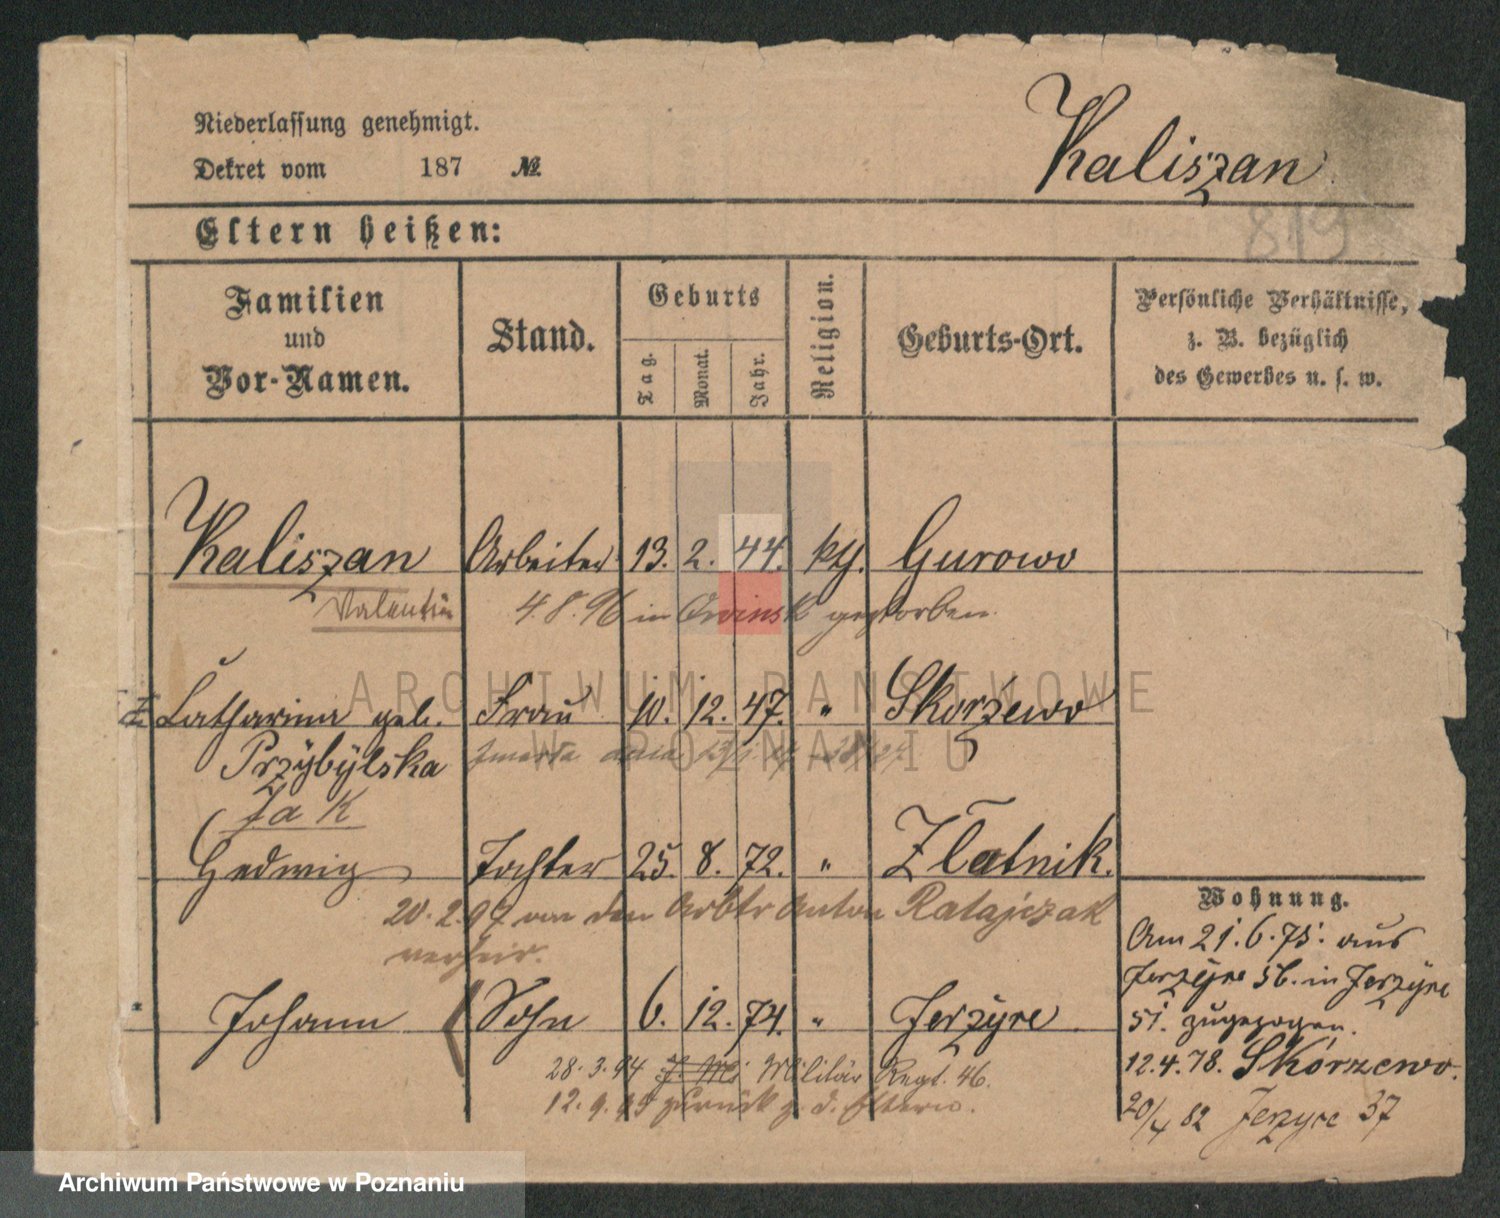 Niederlassung genehmigt.
Dekret vom 187 №
Kaliszan
819
Eltern heißen:
Familien
und
Vor-Namen.
Stand.
Geburts
Tag.
Monat.
Jahr.
Religion.
Geburts-Ort.
Persönliche Verhältnisse,
z. B. bezüglich
des Gewerbes u. s. w.
Kaliszan Arbeiter 13. 2. 44. kth. Gurowo
Valentin 4.8.96 in Owinsk gestorben.
Catharina geb. Frau 10. 12. 47. " Skorzewo
Przybylska zmarła dnia
Jak
Hedwig Tochter 25. 8. 72. " Zlatnik.
20.2.97 von den Arbtr Anton Ratajczak
verheir.
Johann Sohn 6. 12. 74. " Jerzyce
28.3.94 Militär Regt. 46.
12.9.95 zurück z. d. Eltern.
Wohnung.
Am 21.6.75. aus
Jerzyce 56. in Jerzyce
51. zugezogen.
12.4.78. Skórzewo.
20/4 82 Jerzyce 37
ARCHIWUM PAŃSTWOWE
W POZNANIU
Archiwum Państwowe w Poznaniu